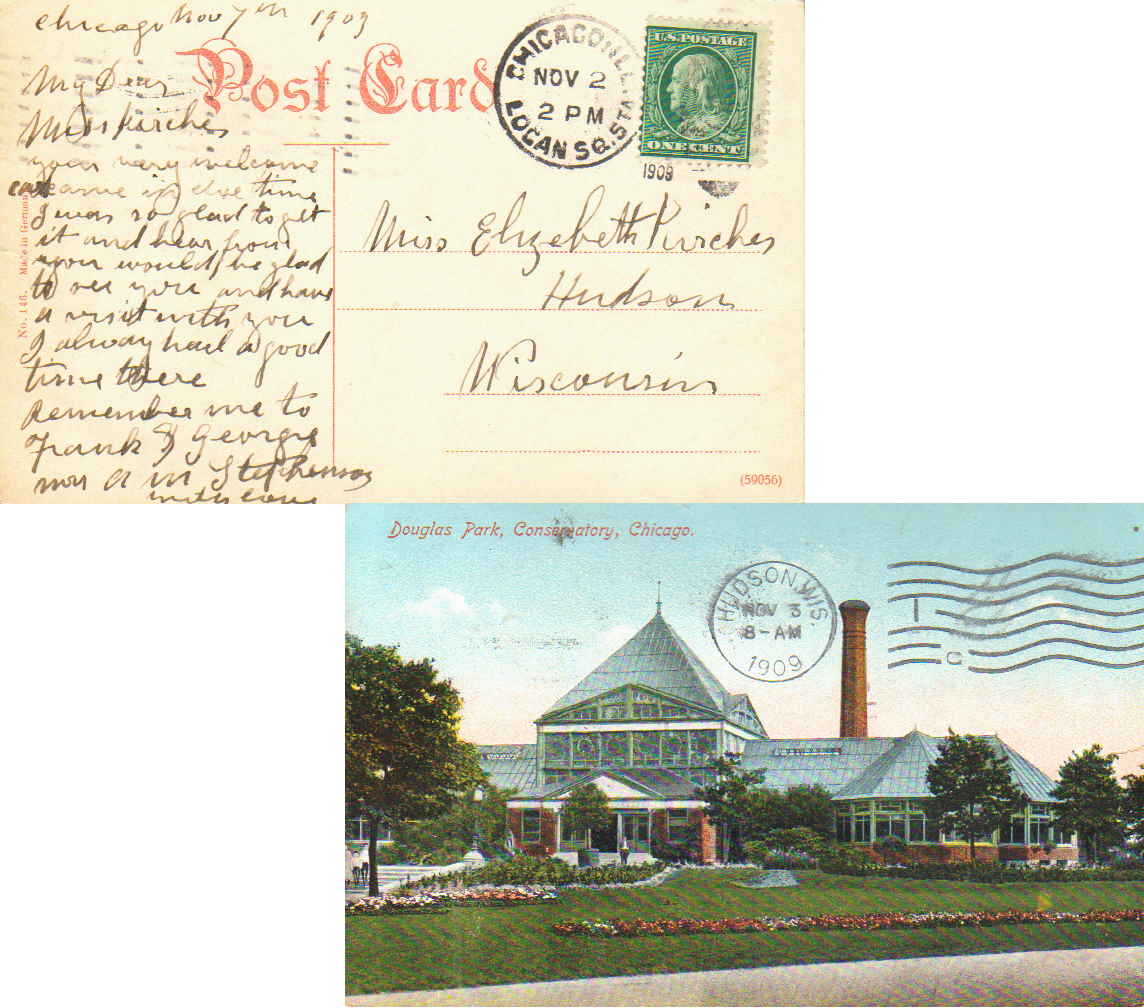 Chicago Nov 7th 1909
Post Card
My Dear
Miss Kirches
your very welcome
card came in due time
I was so glad to get
it and hear from
you would be glad
to see you and have
a visit with you
I alway had a good
time there
Remember me to
Frank & George
in Stephenson
with love
No. 146. Made in Germany
CHICAGO, ILL.
NOV 2
2 PM
LOGAN SQ. STA.
1909
U.S. POSTAGE
ONE CENT
Miss Elizebeth Kirches
Hudson
Wisconsin
(59056)
Douglas Park, Conservatory, Chicago.
HUDSON, WIS.
NOV 3
8-AM
1909